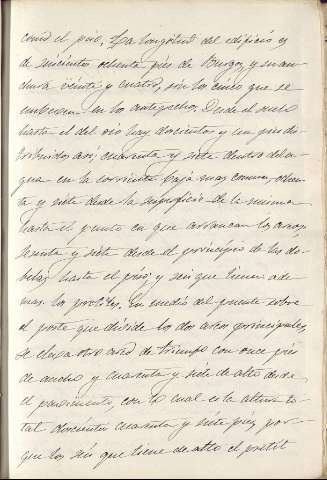 como el piso. La longitud del edificio es
de seiscientos ochenta pies de Burgos y su an-
chura veinte y cuatro, sin los cinco que se
embeben en los antepechos. Desde el suelo
hasta el del rio hay doscientos y un pies dis-
tribuidos asi; cuarenta y siete dentro del a-
gua en la corriente baja mas comun, ochen-
ta y siete desde la superficie de la misma
hasta el punto en que arrancan los arcos,
sesenta y siete desde el principio de las do-
belas hasta el piso; y seis que tienen ade-
mas los pretiles. En medio del puente sobre
el poste que divide los dos arcos principales,
se eleva otro arco de triunfo con once pies
de ancho y cuarenta y siete de alto desde
el pavimento, con lo cual es la altura to-
tal doscientos cuarenta y siete pies, por-
que los seis que tiene de alto el pretil